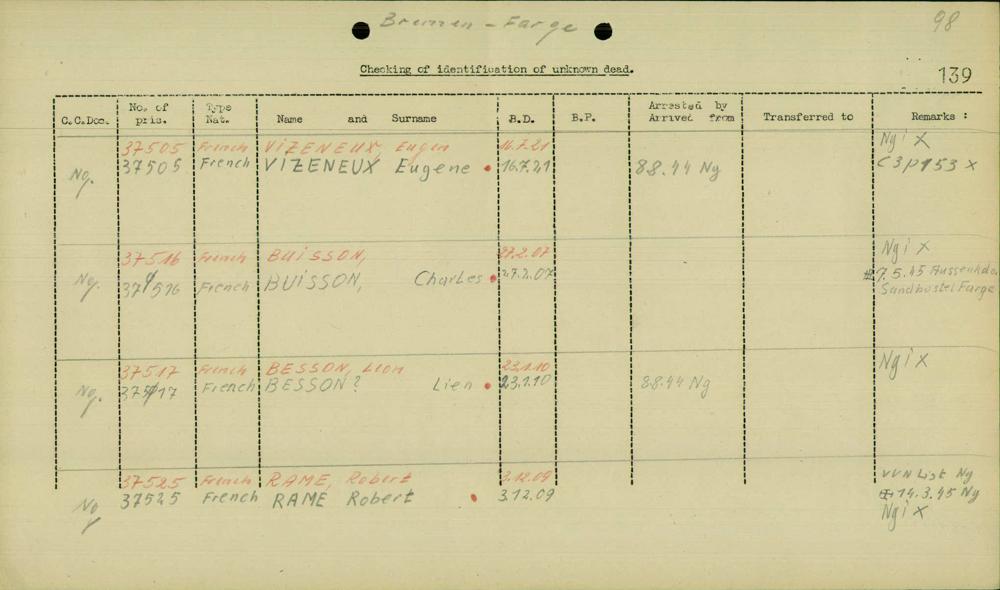 Bremen - Farge
98
Checking of identification of unknown dead.
139
C.C.Doc. No. of pris. Type Nat. Name and Surname B.D. B.P. Arrested by Arrived from Transferred to Remarks :
37505 French VIZENEUX, Eugen 16.7.21 Ngi X
Ng. 37505 French VIZENEUX Eugene 16.7.21 8.8.44 Ng C3p153 X
37516 French BUISSON, 27.2.07 Ngi X
Ng. 37516 French BUISSON, Charles 27.2.07 7.5.45 Aussenkdo.
Sandbostel Farge
37517 French BESSON, Lion 23.1.10 Ngi X
Ng. 37517 French BESSON? Lien 23.1.10 8.8.44 Ng
37525 French RAME, Robert 3.12.09 VVN List Ng
Ng 37525 French RAME Robert 3.12.09 14.3.45 Ng
Ngi X